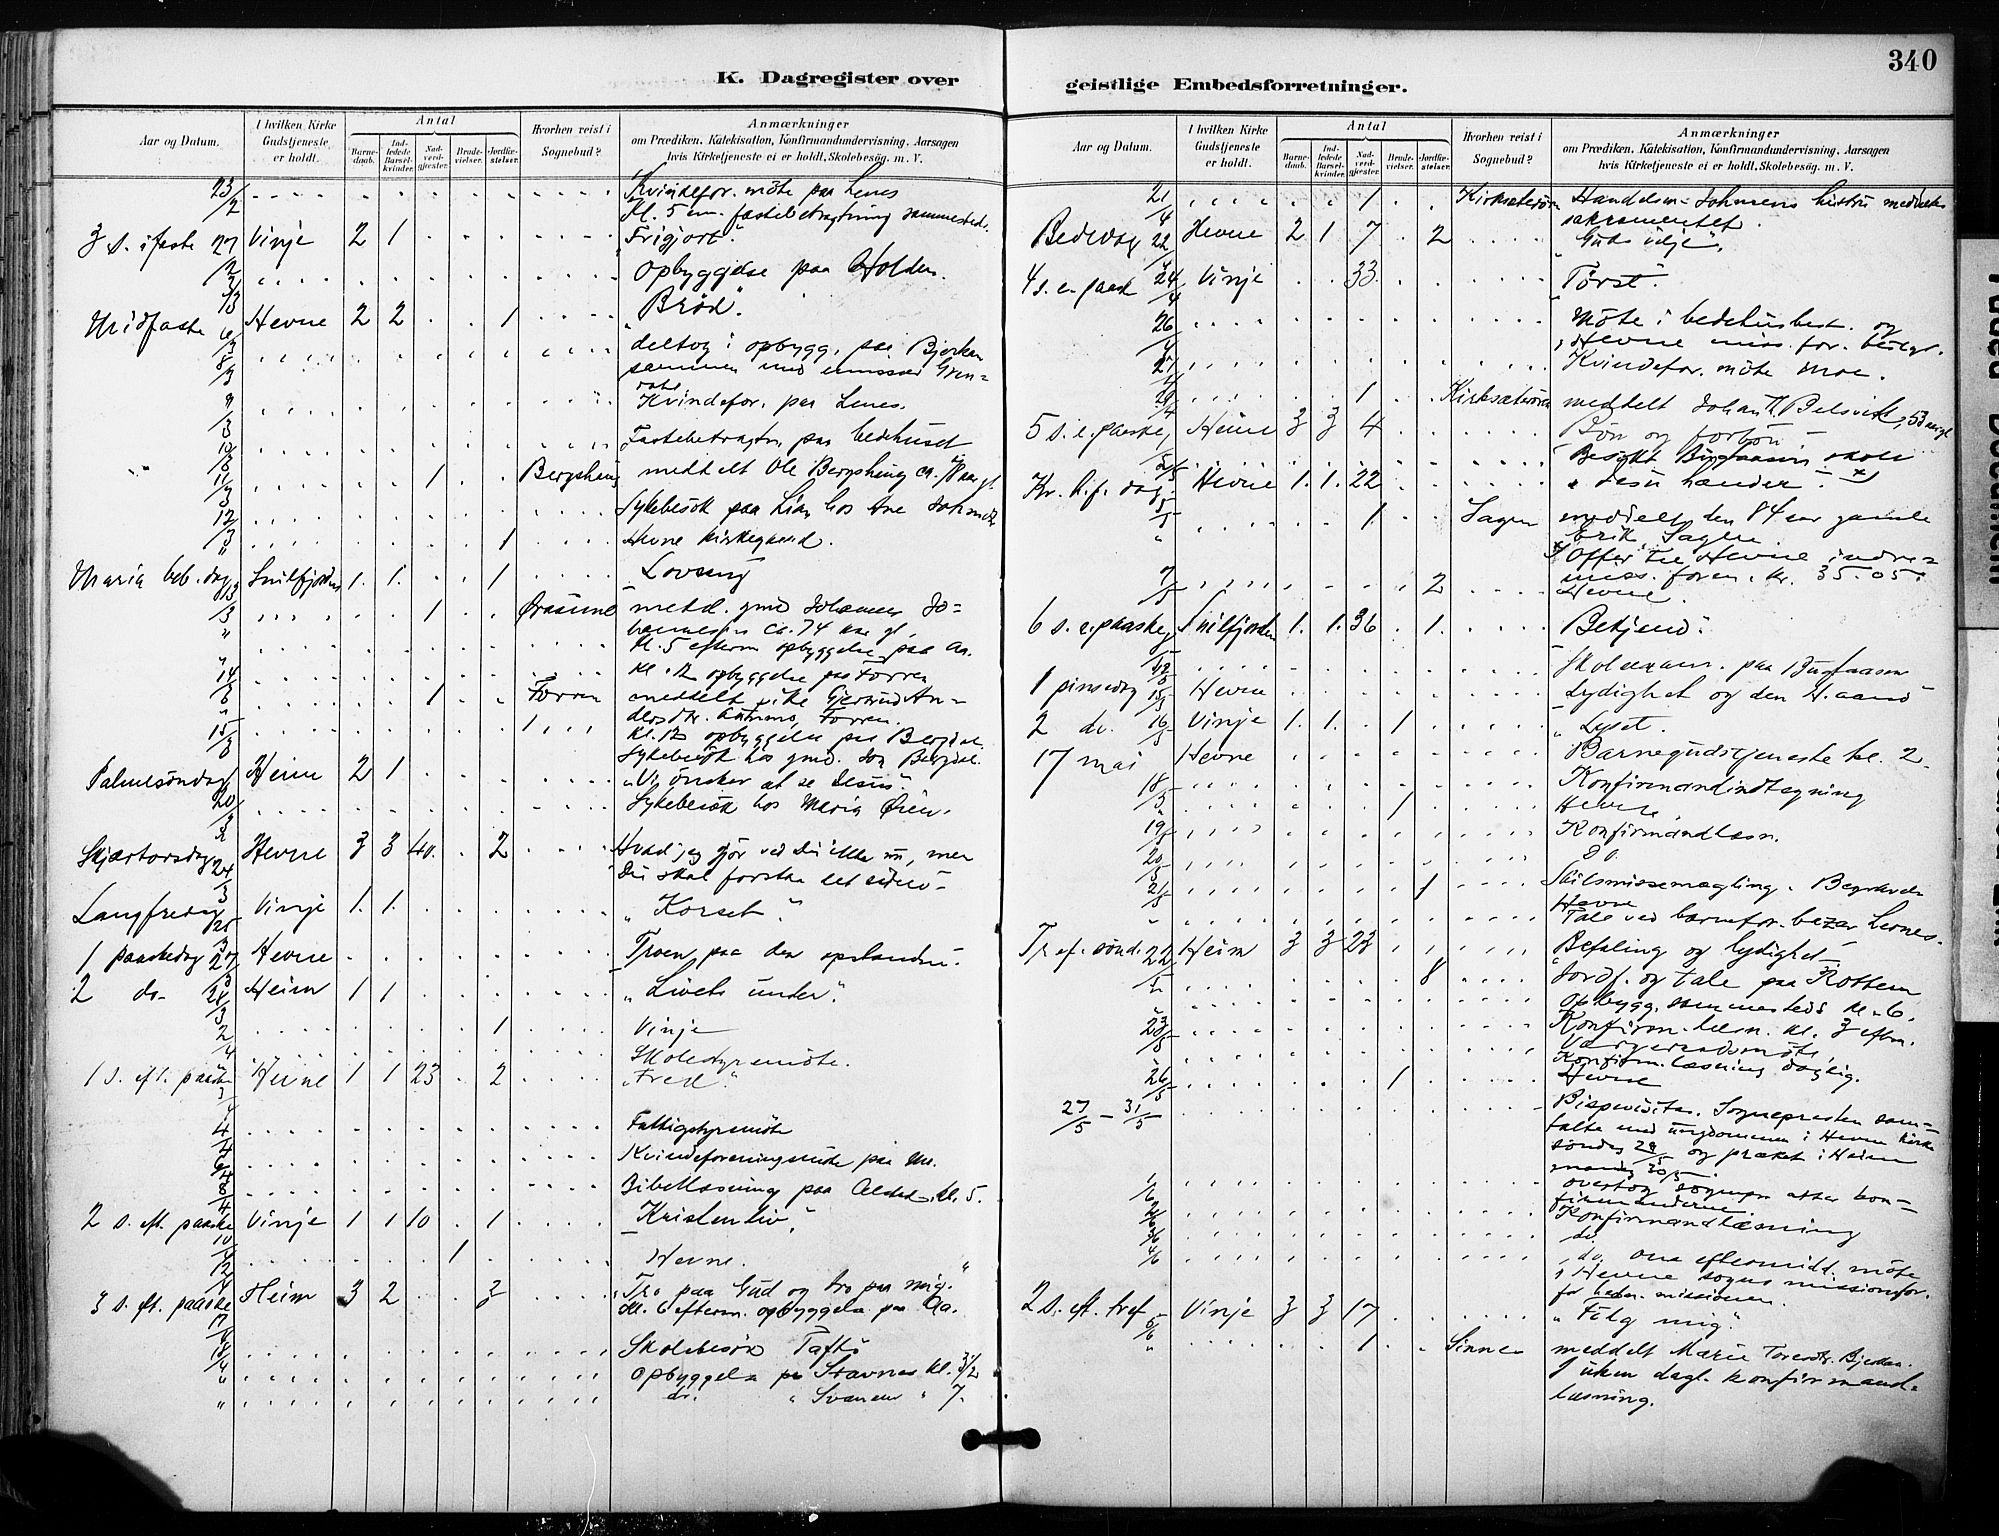 340
K. Dagregister over
geistlige Embedsforretninger.
Aar og Datum.
I hvilken Kirke Gudstjeneste er holdt.
Antal
Barnedaab.
Indledede Barselkvinder.
Nadverdgjester.
Brudevielser.
Jordfæstelser.
Hvorhen reist i Sognebud?
Anmærkninger
om Prædiken. Katekisation, Konfirmandundervisning. Aarsagen
hvis Kirketjeneste ei er holdt. Skolebesøg. m. V.
23/2 Kvindefor. möte paa Lenes
Kl. 5 em. fastebetragtning sammested.
3 s. i faste 27/2 Vinje 2 1 "Frigjort".
Opbyggelse paa Holden.
Midfaste 6/3 Hevne 2 2 1 "Bröd".
8/3 deltog i opbygg. paa Bjerkan
sammen med emissær
9/3 Kvindefor. paa Lenes.
10/3 Fastebetragtn. paa bedehuset
11/3 1 Bergshaug meddelt Ole Bergshaug
12/3 Sykebesök paa Lian hos Ane
" 1 Hevne kirkegaard.
Maria beb. dag 13/3 Snilfjorden 1. 1. 1 Lovsang
" 1 medd. gmd Johannes Johannessen ca. 74 aar gl.
" Kl. 5 efterm opbyggelse paa Aa.
14/3 Kl. 12 opbyggelse paa Forren
" 1 Forren meddelt
15/3 Kl. 12 opbyggelse paa Bergdal.
Sykebesök hos gmd. Bergdal.
Palmesöndag 20/3 Hevne 2 1 "Vi önsker at se Jesus".
Sykebesök hos Maria
Skjærtorsdag 24/3 Hevne 3 3 40. 2 Hvad jeg gjör ved Du ikke nu, men
Du skal forstaa det siden
Langfredag 25/3 Vinje 1. 1. "Korset".
1 paaskedag 27/3 Hevne Troen paa den opstandne.
2 do- 28/3 Heim 1 1 "Livets under".
2/4 1 Vinje
Skolestyremöte.
1 S. eft. paaske 3/4 Hevne 1 1 23 2 "Fred".
4/4 Fattigstyremöte
Kvindeforeningsmöte paa
8/4 Bibellæsning paa kl. 5.
2 s. eft. paaske 10/4 Vinje 1 1 10 1 Kristenliv
12/4 1 Hevne.
3 s. eft. paaske 17/4 Heim 3 2 3 "Tro paa Gud og tro paa mig."
Kl. 6 efterm. opbyggelse paa Aa.
18/4 Skolebesök
" Opbyggelse paa Stavnes kl. 3 1/2
" do. " " 7.
Aar og Datum.
I hvilken Kirke Gudstjeneste er holdt.
Antal
Barnedaab.
Indledede Barselkvinder.
Nadverdgjester.
Brudevielser.
Jordfæstelser.
Hvorhen reist i Sognebud?
Anmærkninger
om Prædiken. Katekisation, Konfirmandundervisning. Aarsagen
hvis Kirketjeneste ei er holdt. Skolebesøg. m. V.
21/4 1 Kirksæterören Handelsm. Johnsens hustru meddelt
sakramentet.
Bededag 22/4 Hevne 2 1 7 2 "Guds vilje".
4 s. e. paask 24/4 Vinje 33. "Törst".
26/4 Möte i bedehusbest. og
i Hevne miss. for. best.
27/4 Kvindefor. möte Moe.
29/4 1 Kirksæterören meddelt Johan Belsvik, 53 aar gl.
5 s. e. paaske Hevne 3 3 4 Bön og forbön
Besökt skole
Kr. h.f. dag 5/5 Hevne 1. 1. 22 "I Jesu hænder". x)
" 1. Sagen meddelt den 84 aar gamle
Erik Sagen
x) Offer til Hevne indremiss. foren. kr. 35.05.
7/5 2 Hevne.
6 s. e. paaske Snilfjorden 1. 1. 36 1. Bekjend.
Skoleexam. paa
1 pinsedag 15/5 Hevne Lydighet og den H. aand
2 do. 16/5 Vinje 1. 1. 1 "Lyset.
17 mai Hevne Barnegudstjeneste kl. 2.
18/5 Konfirmandindtagning
" 1 Hevne
19/5 Konfirmandlæsn.
20/5 Do.
21/5 1 Skilsmissemægling. Begravelse
Hevne
" Tale ved barnefor. bazar Lenes.
Tref. sönd. 22/5 Heim 3 3 23 Befaling og lydighet
8 Jordf. og tale paa Rottem
Opbygg. sammesteds kl. 6.
23/5 Konfirm. læsn. kl. 3 efm.
Værgeraadsmöte
Konfirm. læsning daglig.
26/5 1 Hevne
27/5 - 31/5 Bispevisitas. Sognepresten samtalte med ungdommen i Hevne kirke
söndag 29/5 og præket i Heim
mandag 30/5
1/6 overtog sognepr. atter konfirmanderne.
2/6 Konfirmandlæsning
3/6 do.
4/6 do. Om eftermidd. möte
i Hevne sogns missionsfor.
for hedn. missionen.
2 S. eft. tref 5/6 Vinje 3 3 17 "Fölg mig".
" 1 Sinnes meddelt Marie
I uken dagl. konfirmandlæsning.